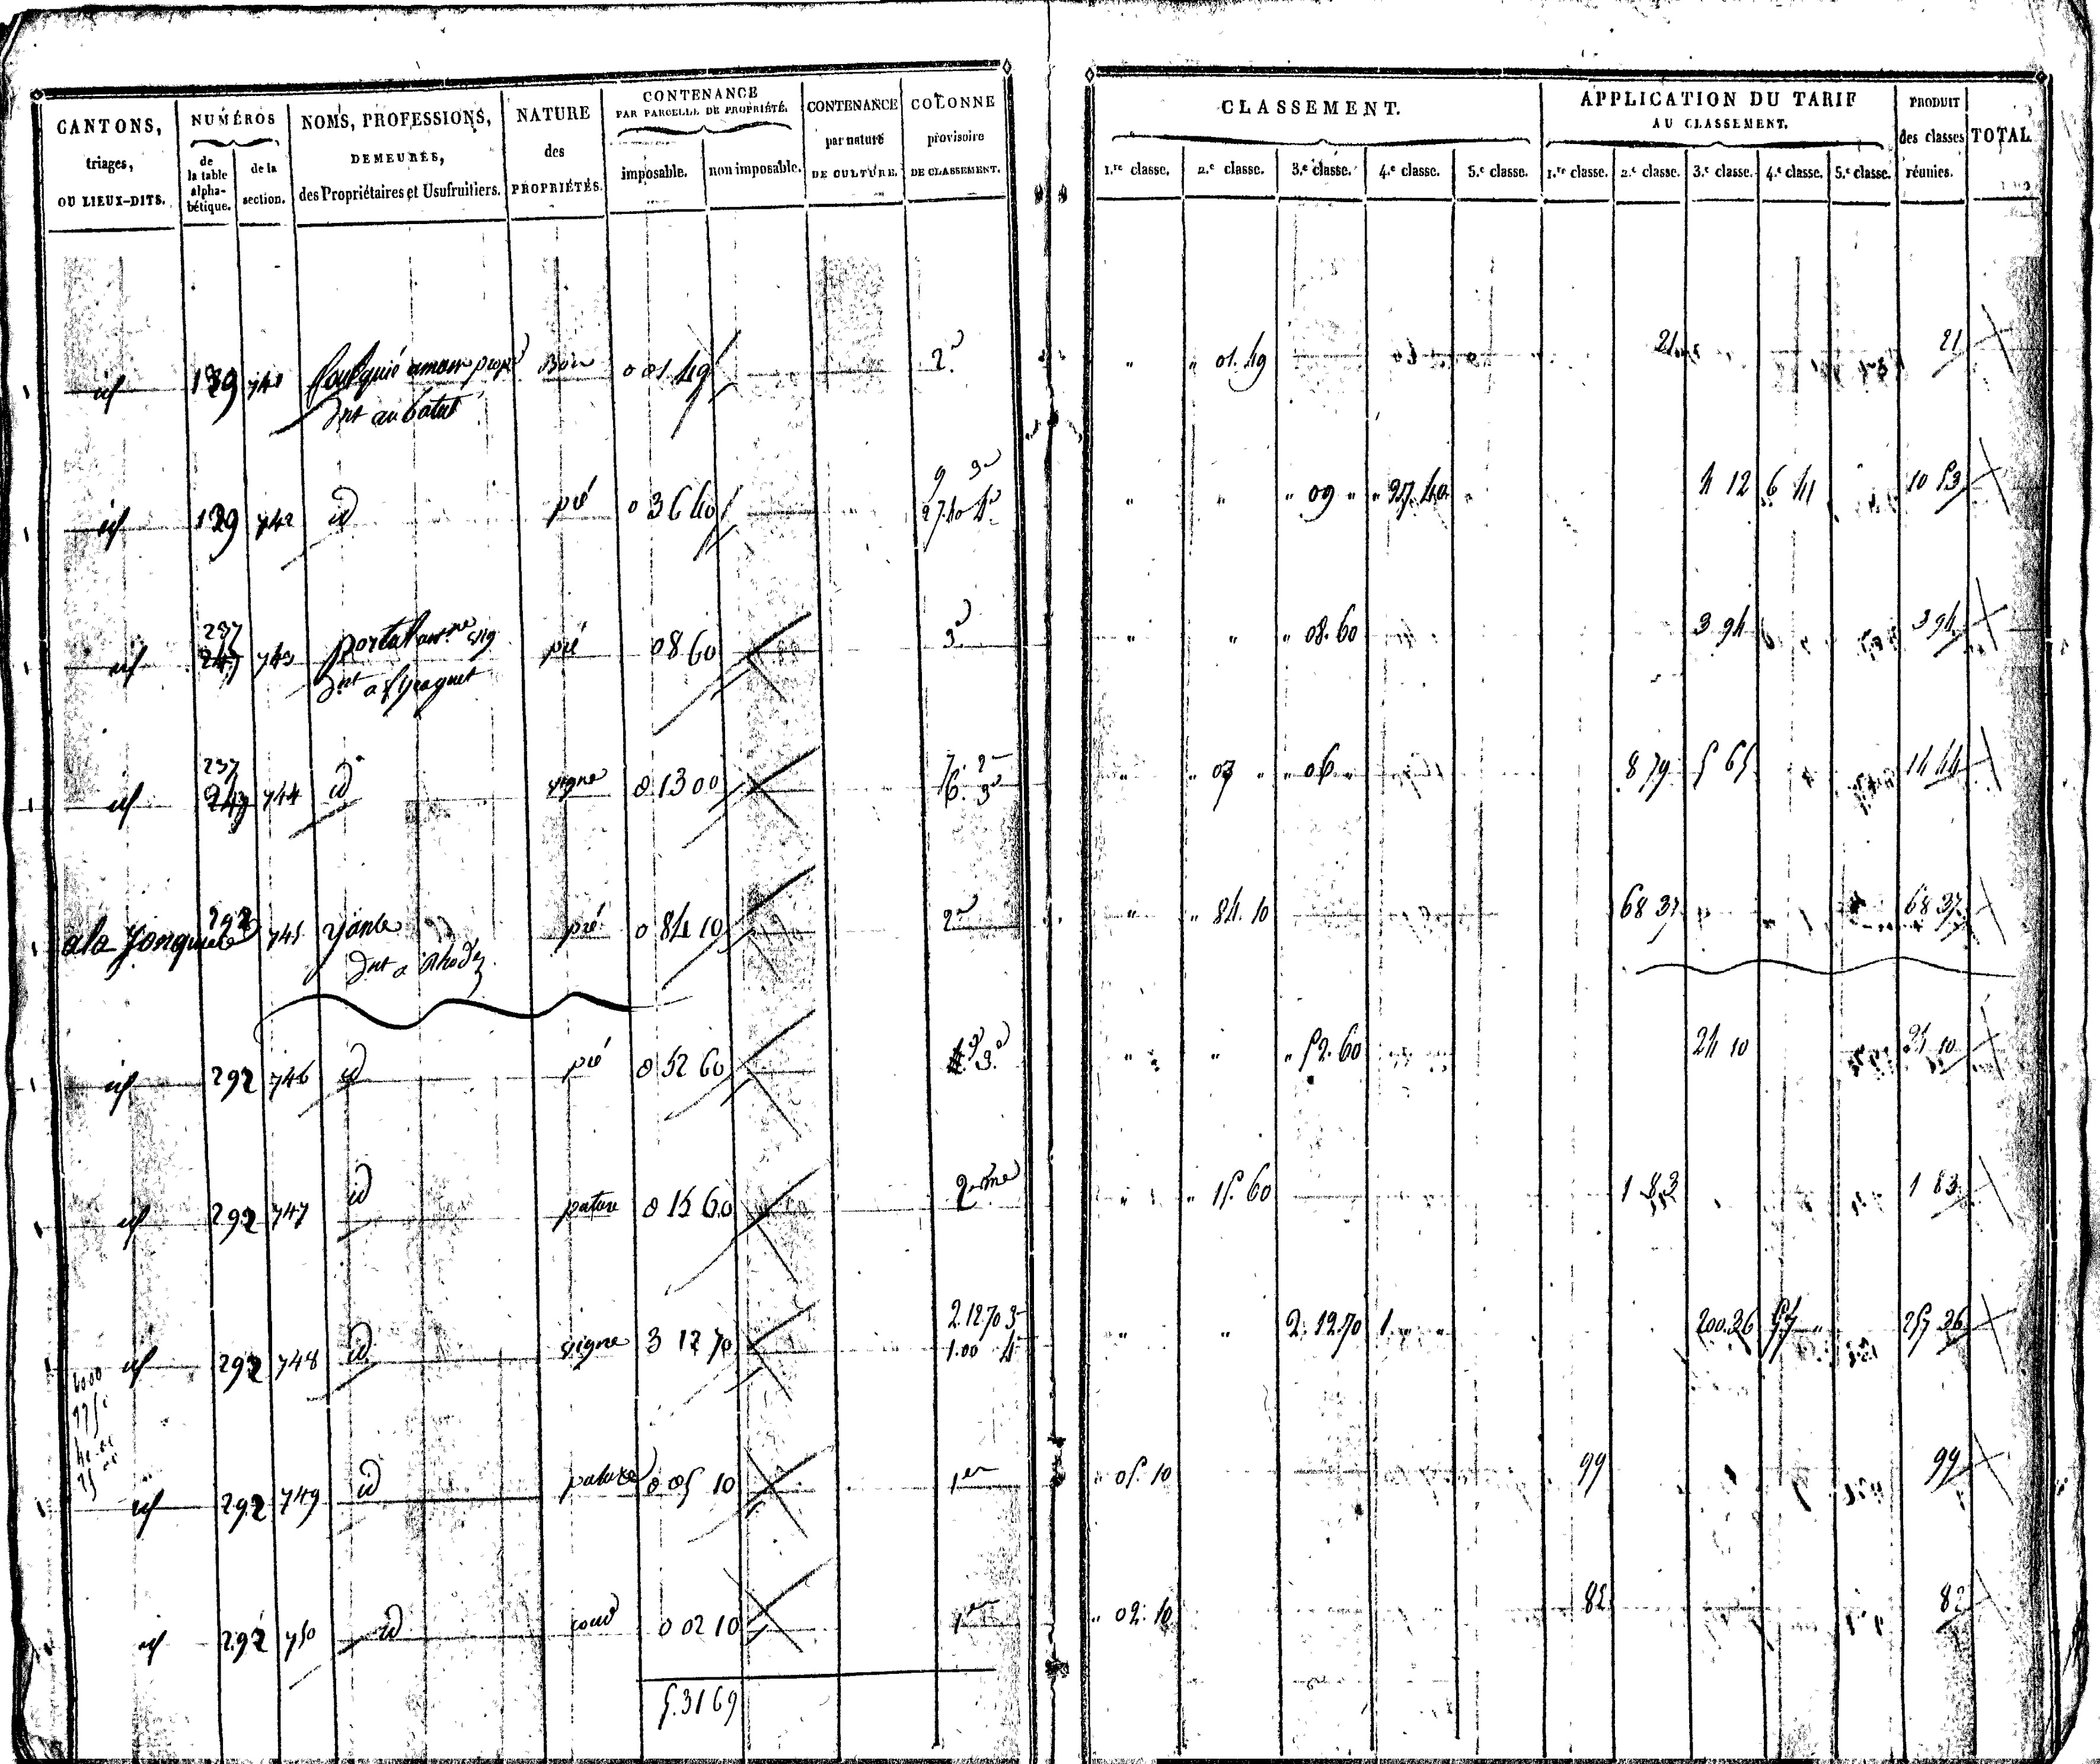 CANTONS, triages, OU LIEUX-DITS. NUMÉROS de la table alpha-bétique. de la section. NOMS, PROFESSIONS, DEMEURES, des Propriétaires et Usufruitiers. NATURE des PROPRIÉTÉS. CONTENANCE PAR PARCELLE DE PROPRIÉTÉ. imposable. non imposable. CONTENANCE par nature DE CULTURE. COLONNE provisoire DE CLASSEMENT.
CLASSEMENT. 1.re classe. 2.e classe. 3.e classe. 4.e classe. 5.e classe. APPLICATION DU TARIF AU CLASSEMENT. 1.re classe. 2.e classe. 3.e classe. 4.e classe. 5.e classe. PRODUIT des classes réunies. TOTAL
id 139 741 amans prop Bois 0 01.49 2e " " 01.49 21 21
Dnt au batut
id 139 742 id pré 0 36 40 9 3e " " " 09 " " 27.40 4 12 6 41 10 53
27.40 4e
237
id 247 743 portal pré 08 60 3e " " " 08.60 3 94 3 94
Dnt a
237
id 247 744 id vigne 0 13 00 7. 2e " " 07 " " 06 " 8 79 5 65 14 44
6. 3e
a la Jonquiere 292 745 yence pré 0 84 10 2e " " 84.10 68 37 68 37
Dnt a Rhodez
id 292 746 id pré 0 52 60 3e " " " 52.60 24 10 24 10
id 292 747 id pature 0 15 60 2eme " " 15.60 1 83 1 83
id 292 748 id vigne 3 12 70 2.12.70 3e " " 2.12.70 1. " " 200.26 57 " 257 26
1.00 4e
id 292 749 id pature 0 05 10 1er " 05.10 99 99
id 292 750 id 0 02 10 1er " 02.10 82 82
5.31 69